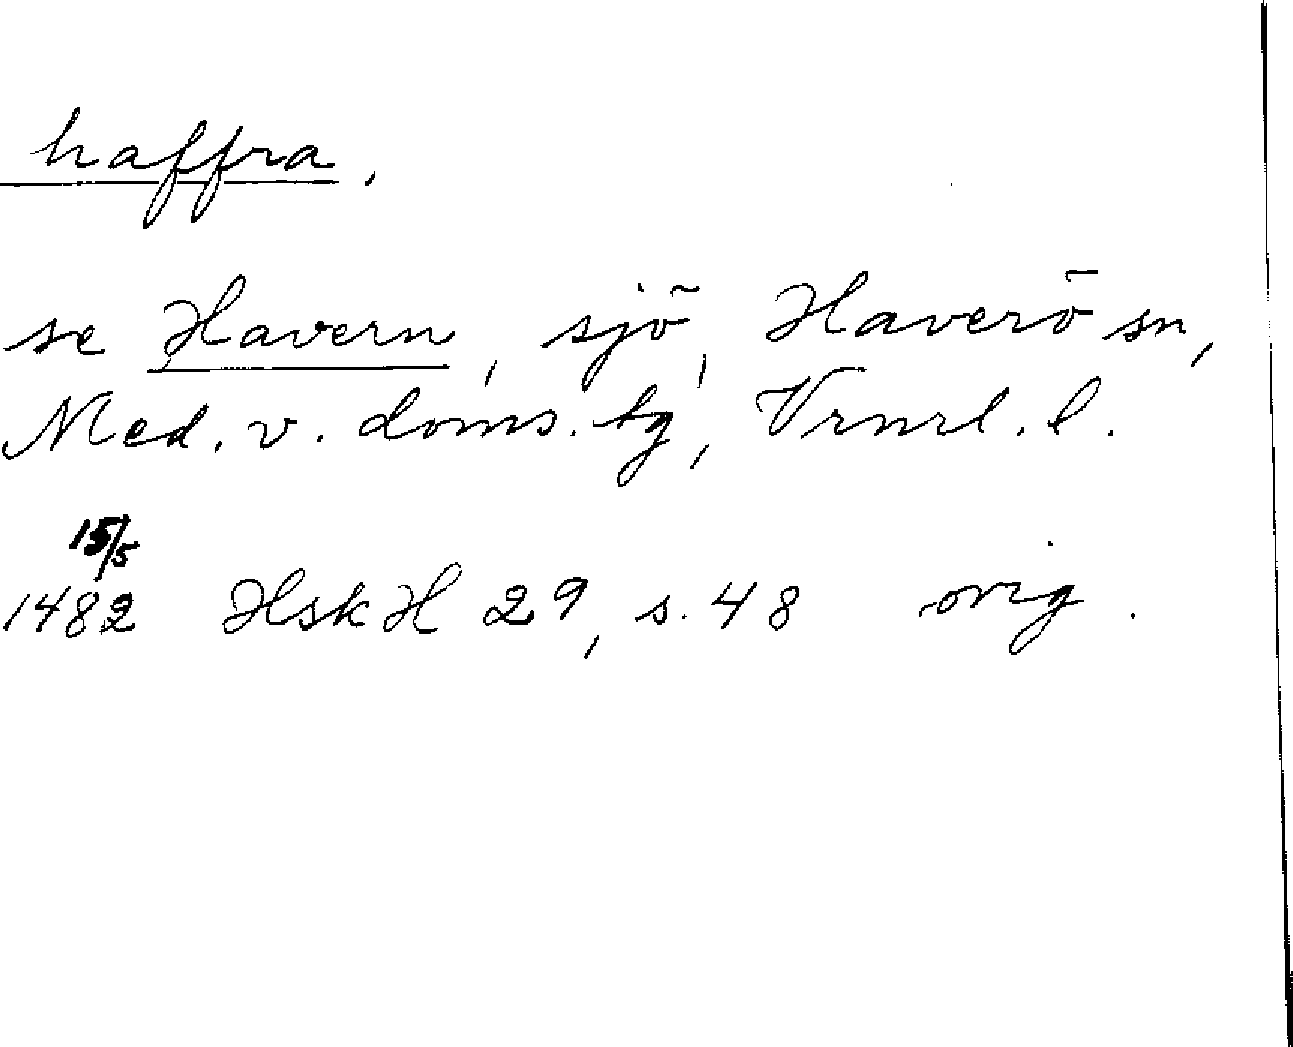 haffra,
se Havern, sjö, Haverö sn,
Med. v. doms. tg, Vrnrl. l.
15/5
1482 HskH 29, s. 48 orig.